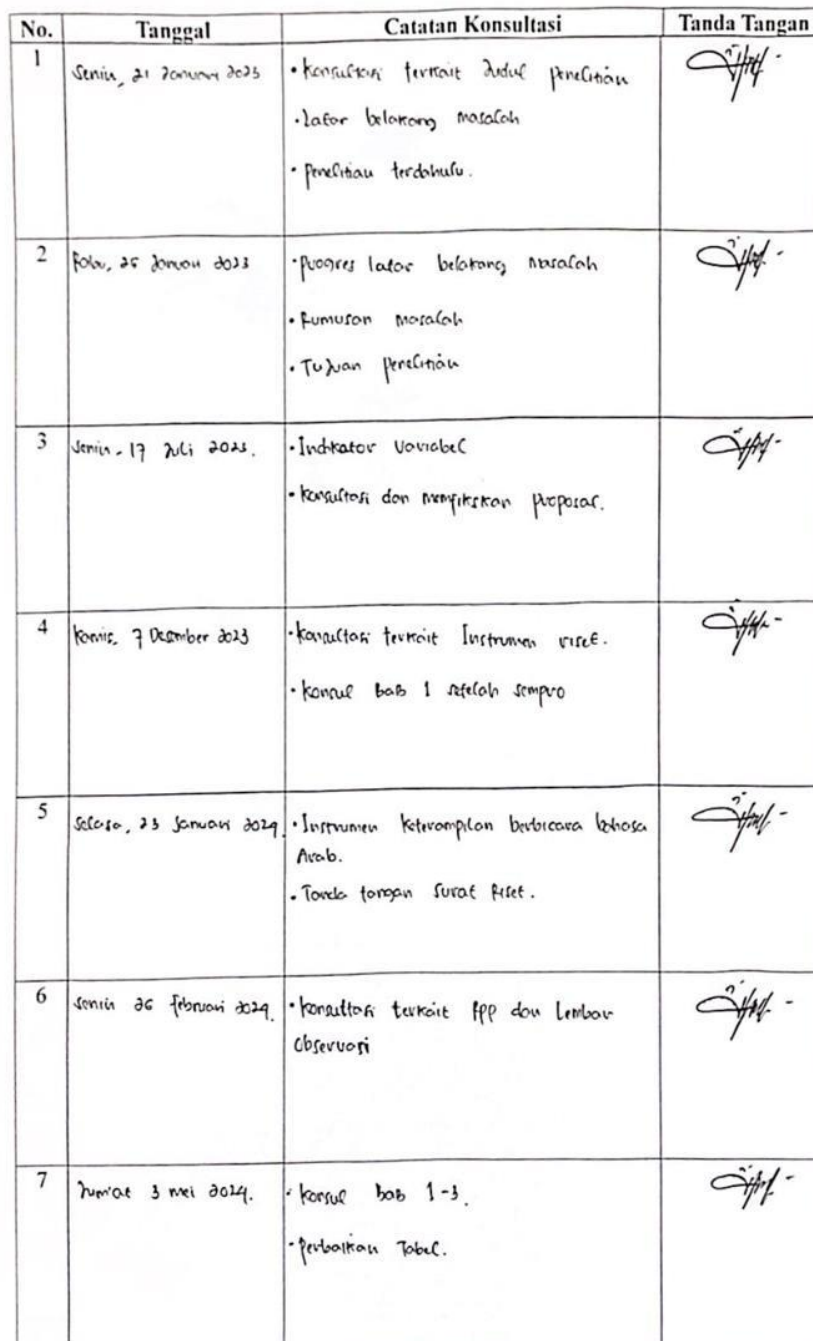 No. Tanggal Catatan Konsultasi Tanda Tangan
1 Senin, 21 Januari 2023 • Konsultasi terkait Judul penelitian
• Latar belakang masalah
• Penelitian terdahulu.
2 Rabu, 25 Januari 2023 • Progres latar belakang masalah
• Rumusan masalah
• Tujuan penelitian
3 Senin, 17 Juli 2023. • Indikator Variabel
• Konsultasi dan memfikskan proposal.
4 Kamis, 7 Desember 2023 • Konsultasi terkait Instrumen riset.
• Konsul Bab 1 setelah sempro
5 Selasa, 23 Januari 2024. • Instrumen keterampilan berbicara bahasa
Arab.
• Tanda tangan Surat Riset.
6 Senin 26 februari 2024. • Konsultasi terkait RPP dan Lembar
Observasi
7 Jum'at 3 mei 2024. • Konsul Bab 1-3.
• Perbaikan Tabel.